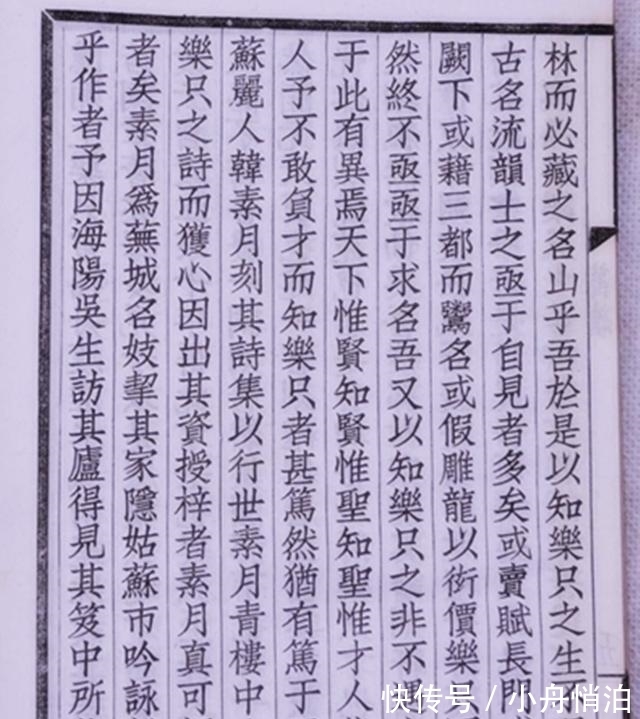 林而必藏之名山乎吾於是以知樂只之生
古名流韻士之亟于自見者多矣或賣賦長門
闕下或藉三都而鸞名或假雕龍以衒價樂只
然終不亟亟于求名吾又以知樂只之非不
于此有異焉天下惟賢知賢惟聖知聖惟才人
人予不敢負才而知樂只者甚篤然猶有篤于
蘇麗人韓素月刻其詩集以行世素月青樓中
樂只之詩而獲心因出其資授梓者素月真可
者矣素月爲蕪城名妓挈其家隱姑蘇市吟詠
乎作者予因海陽吳生訪其廬得見其笈中所
快传号 / 小舟悄泊